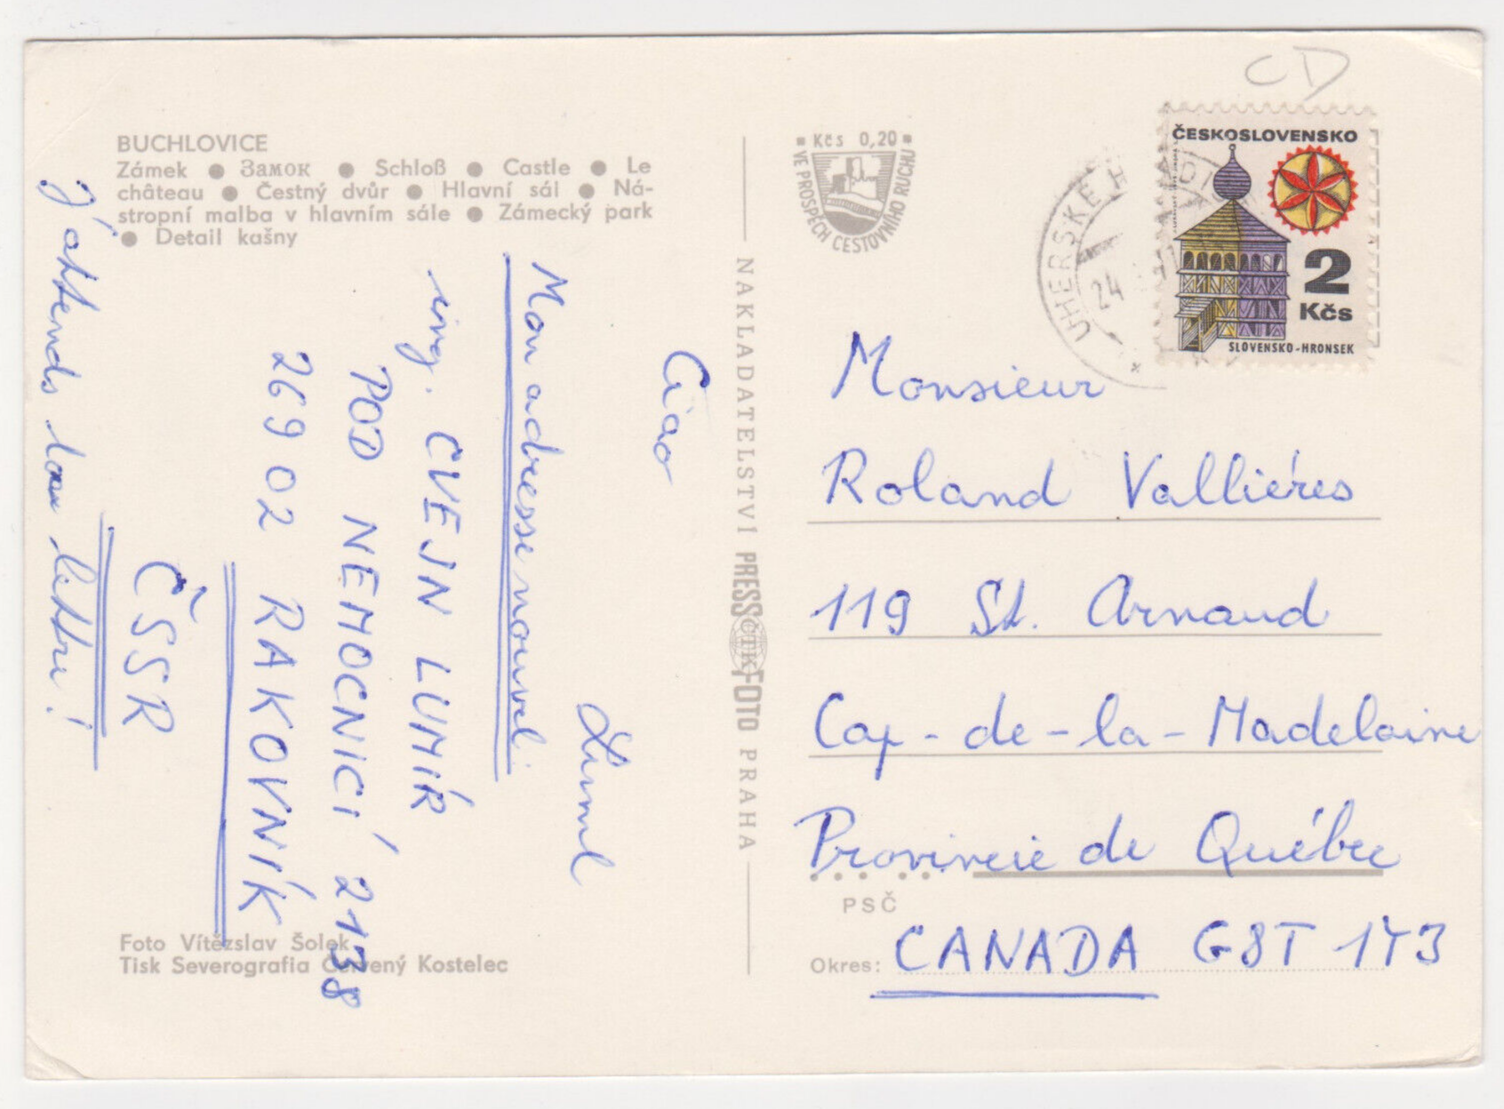 BUCHLOVICE
Zámek ● Замок ● Schloß ● Castle ● Le
château ● Čestný dvůr ● Hlavní sál ● Ná-
stropní malba v hlavním sále ● Zámecký park
● Detail kašny
Ciao
Luml
Mon adresse nouvel:
ing. CVEJN LUMÍR
POD NEMOCNICÍ 2138
269 02 RAKOVNÍK
ČSSR
J'attends
lettre!
Foto Vítězslav Šolek
Tisk Severografia Červený Kostelec
NAKLADATELSTVÍ PRESSFOTO PRAHA
ČTK
Kčs 0,20
VE PROSPĚCH CESTOVNÍHO RUCHU
CD
UHERSKÉ H
24
ČESKOSLOVENSKO
2
Kčs
SLOVENSKO-HRONSEK
Monsieur
Roland Vallières
119 St. Arnaud
Cap-de-la-Madelaine
Provincie de Québec
PSČ
Okres: CANADA G8T 1Y3